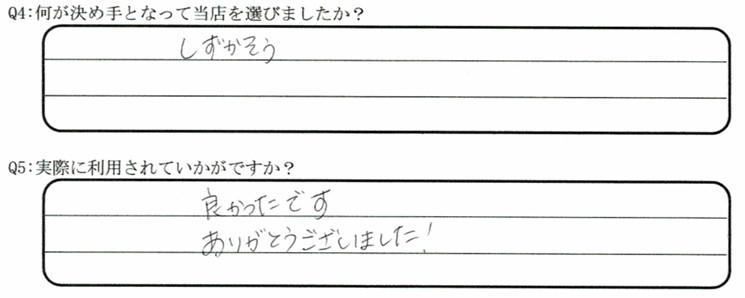 Q4:何が決め手となって当店を選びましたか？
しずかそう
Q5:実際に利用されていかがですか？
良かったです
ありがとうございました!